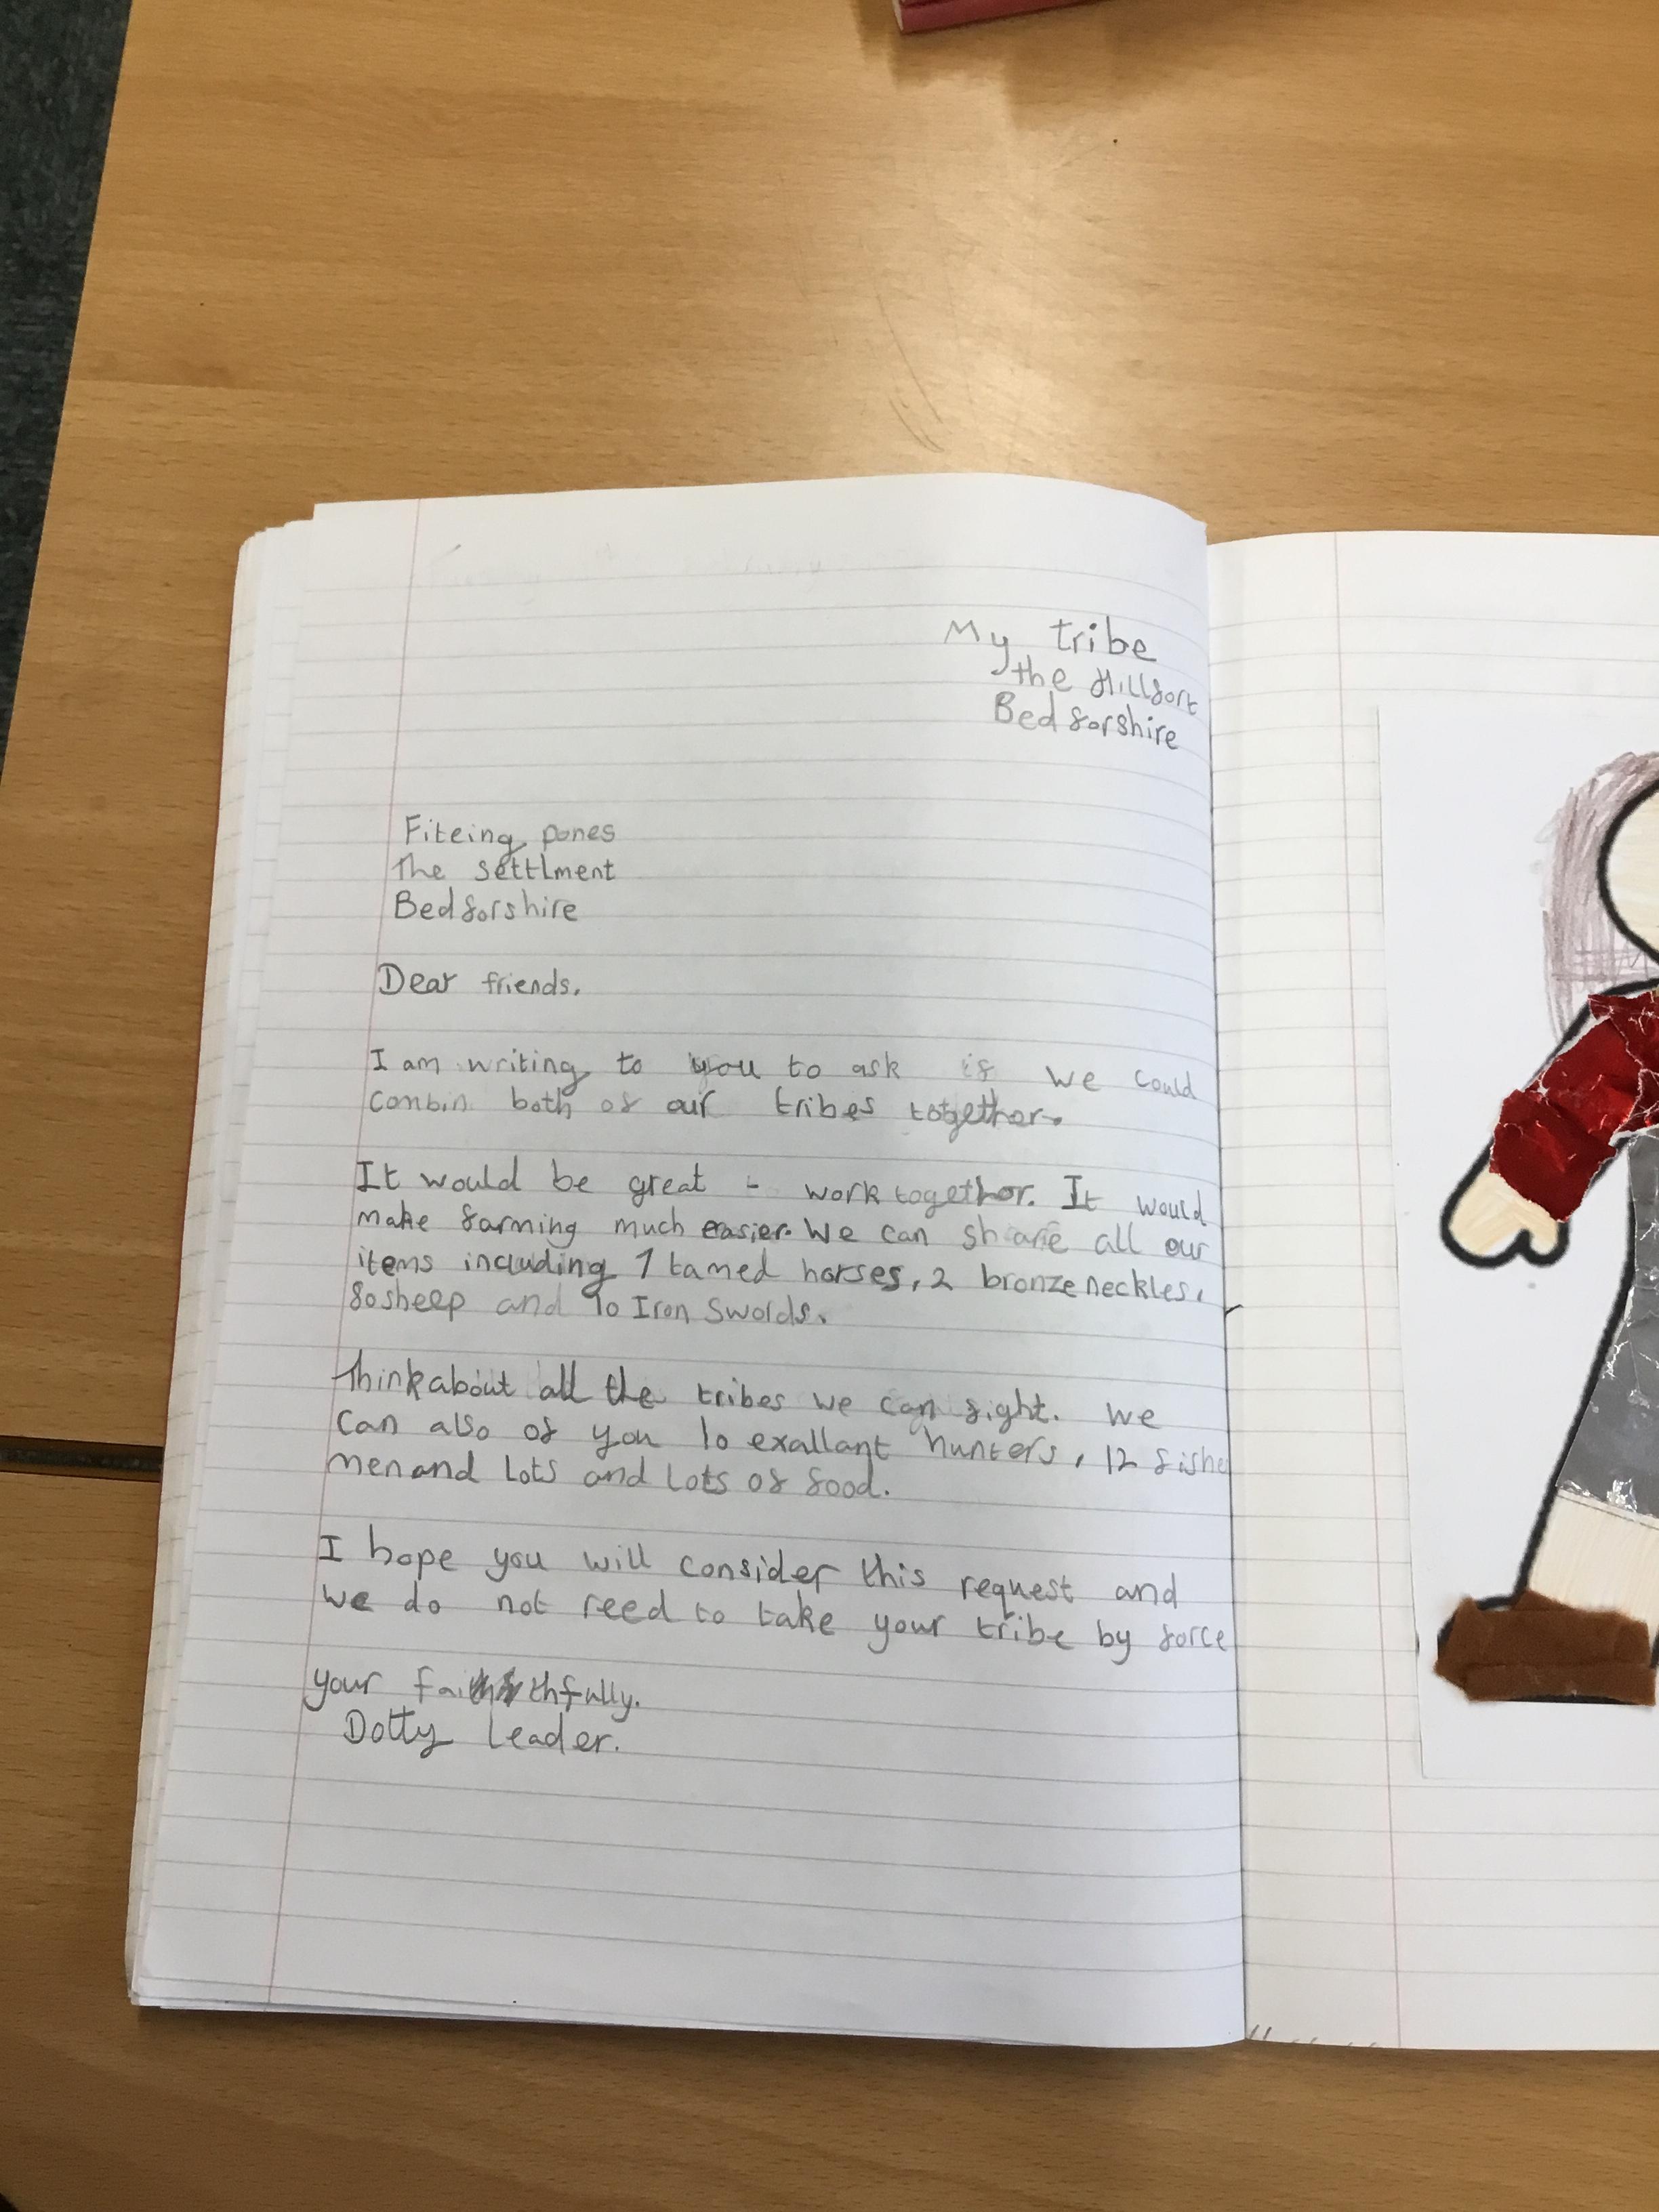 My tribe
the Hillfort
Bedforshire
Fiteing pones
The settlment
Bedforshire
Dear friends.
I am writing to you to ask if we could
combin both of our tribes together.
It would be great - work together. It would
make farming much easier. We can share all our
items including 7 tamed horses, 2 bronze neckles,
80 sheep and 10 Iron Swords.
Think about all the tribes we can fight. We
can also of you 10 exallant hunters, 12 fisher
men and lots and lots of food.
I hope you will consider this request and
we do not need to take your tribe by force
your faithfully.
Dotty leader.